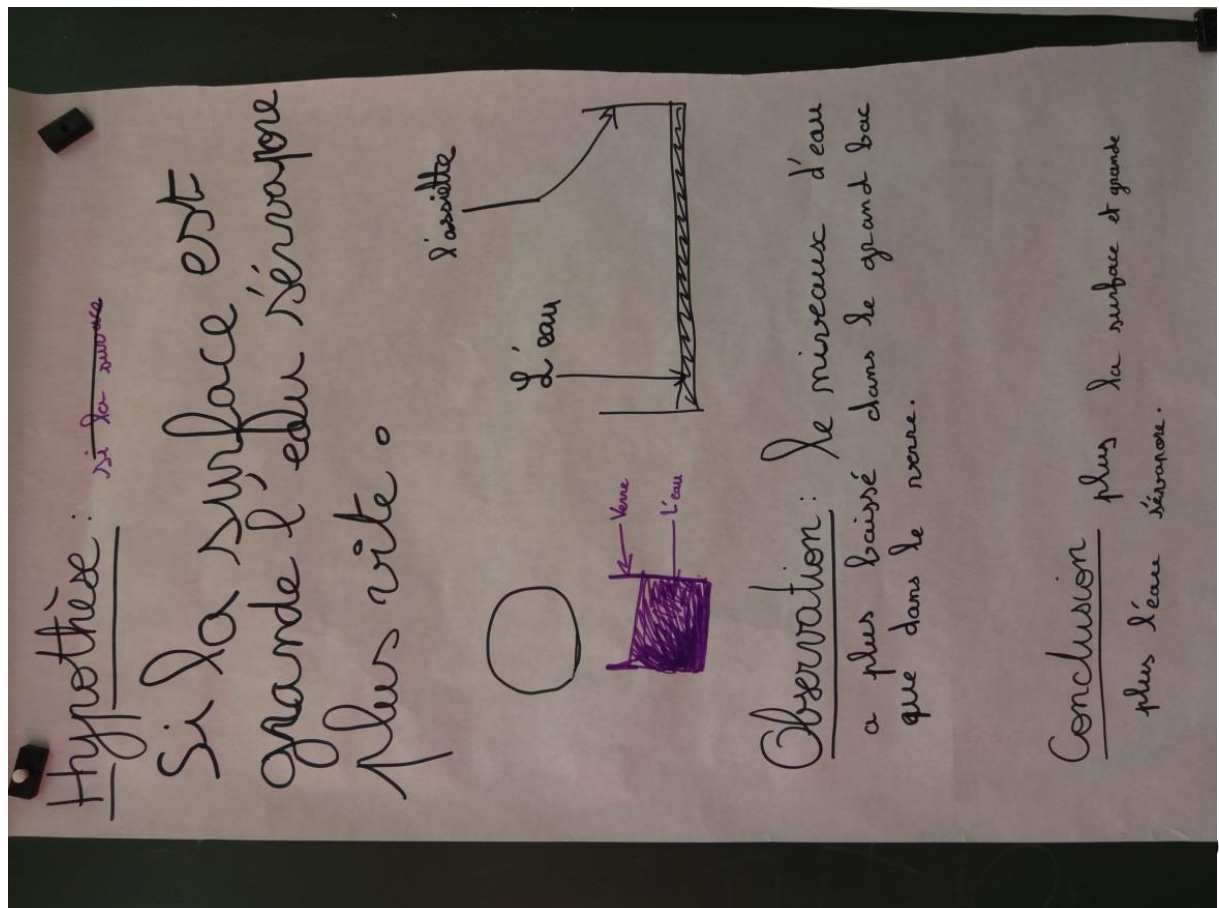 Hypothèse : si la surface
Si la surface est
grande l'eau s'érvapore
plus vite.
l'assiette
L'eau
Verre
L'eau
Observation : le niveaux d'eau
a plus baissé dans le grand bac
que dans le verre.
Conclusion plus la surface et grande
plus l'eau sévapore.